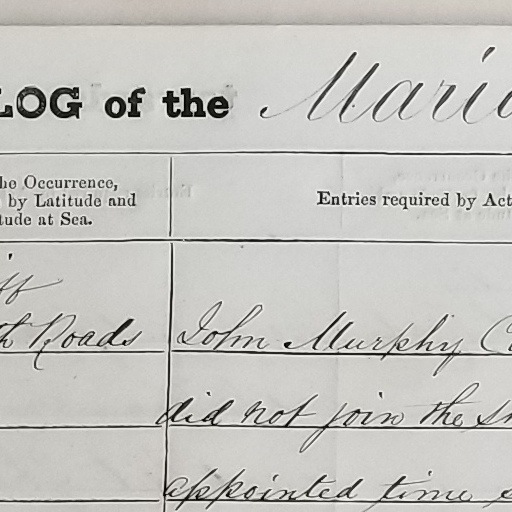 LOG of the Maria
he Occurrence,
by Latitude and
tude at Sea.
Entries required by Act
ff
th Roads John Murphy
did not join the
appointed time